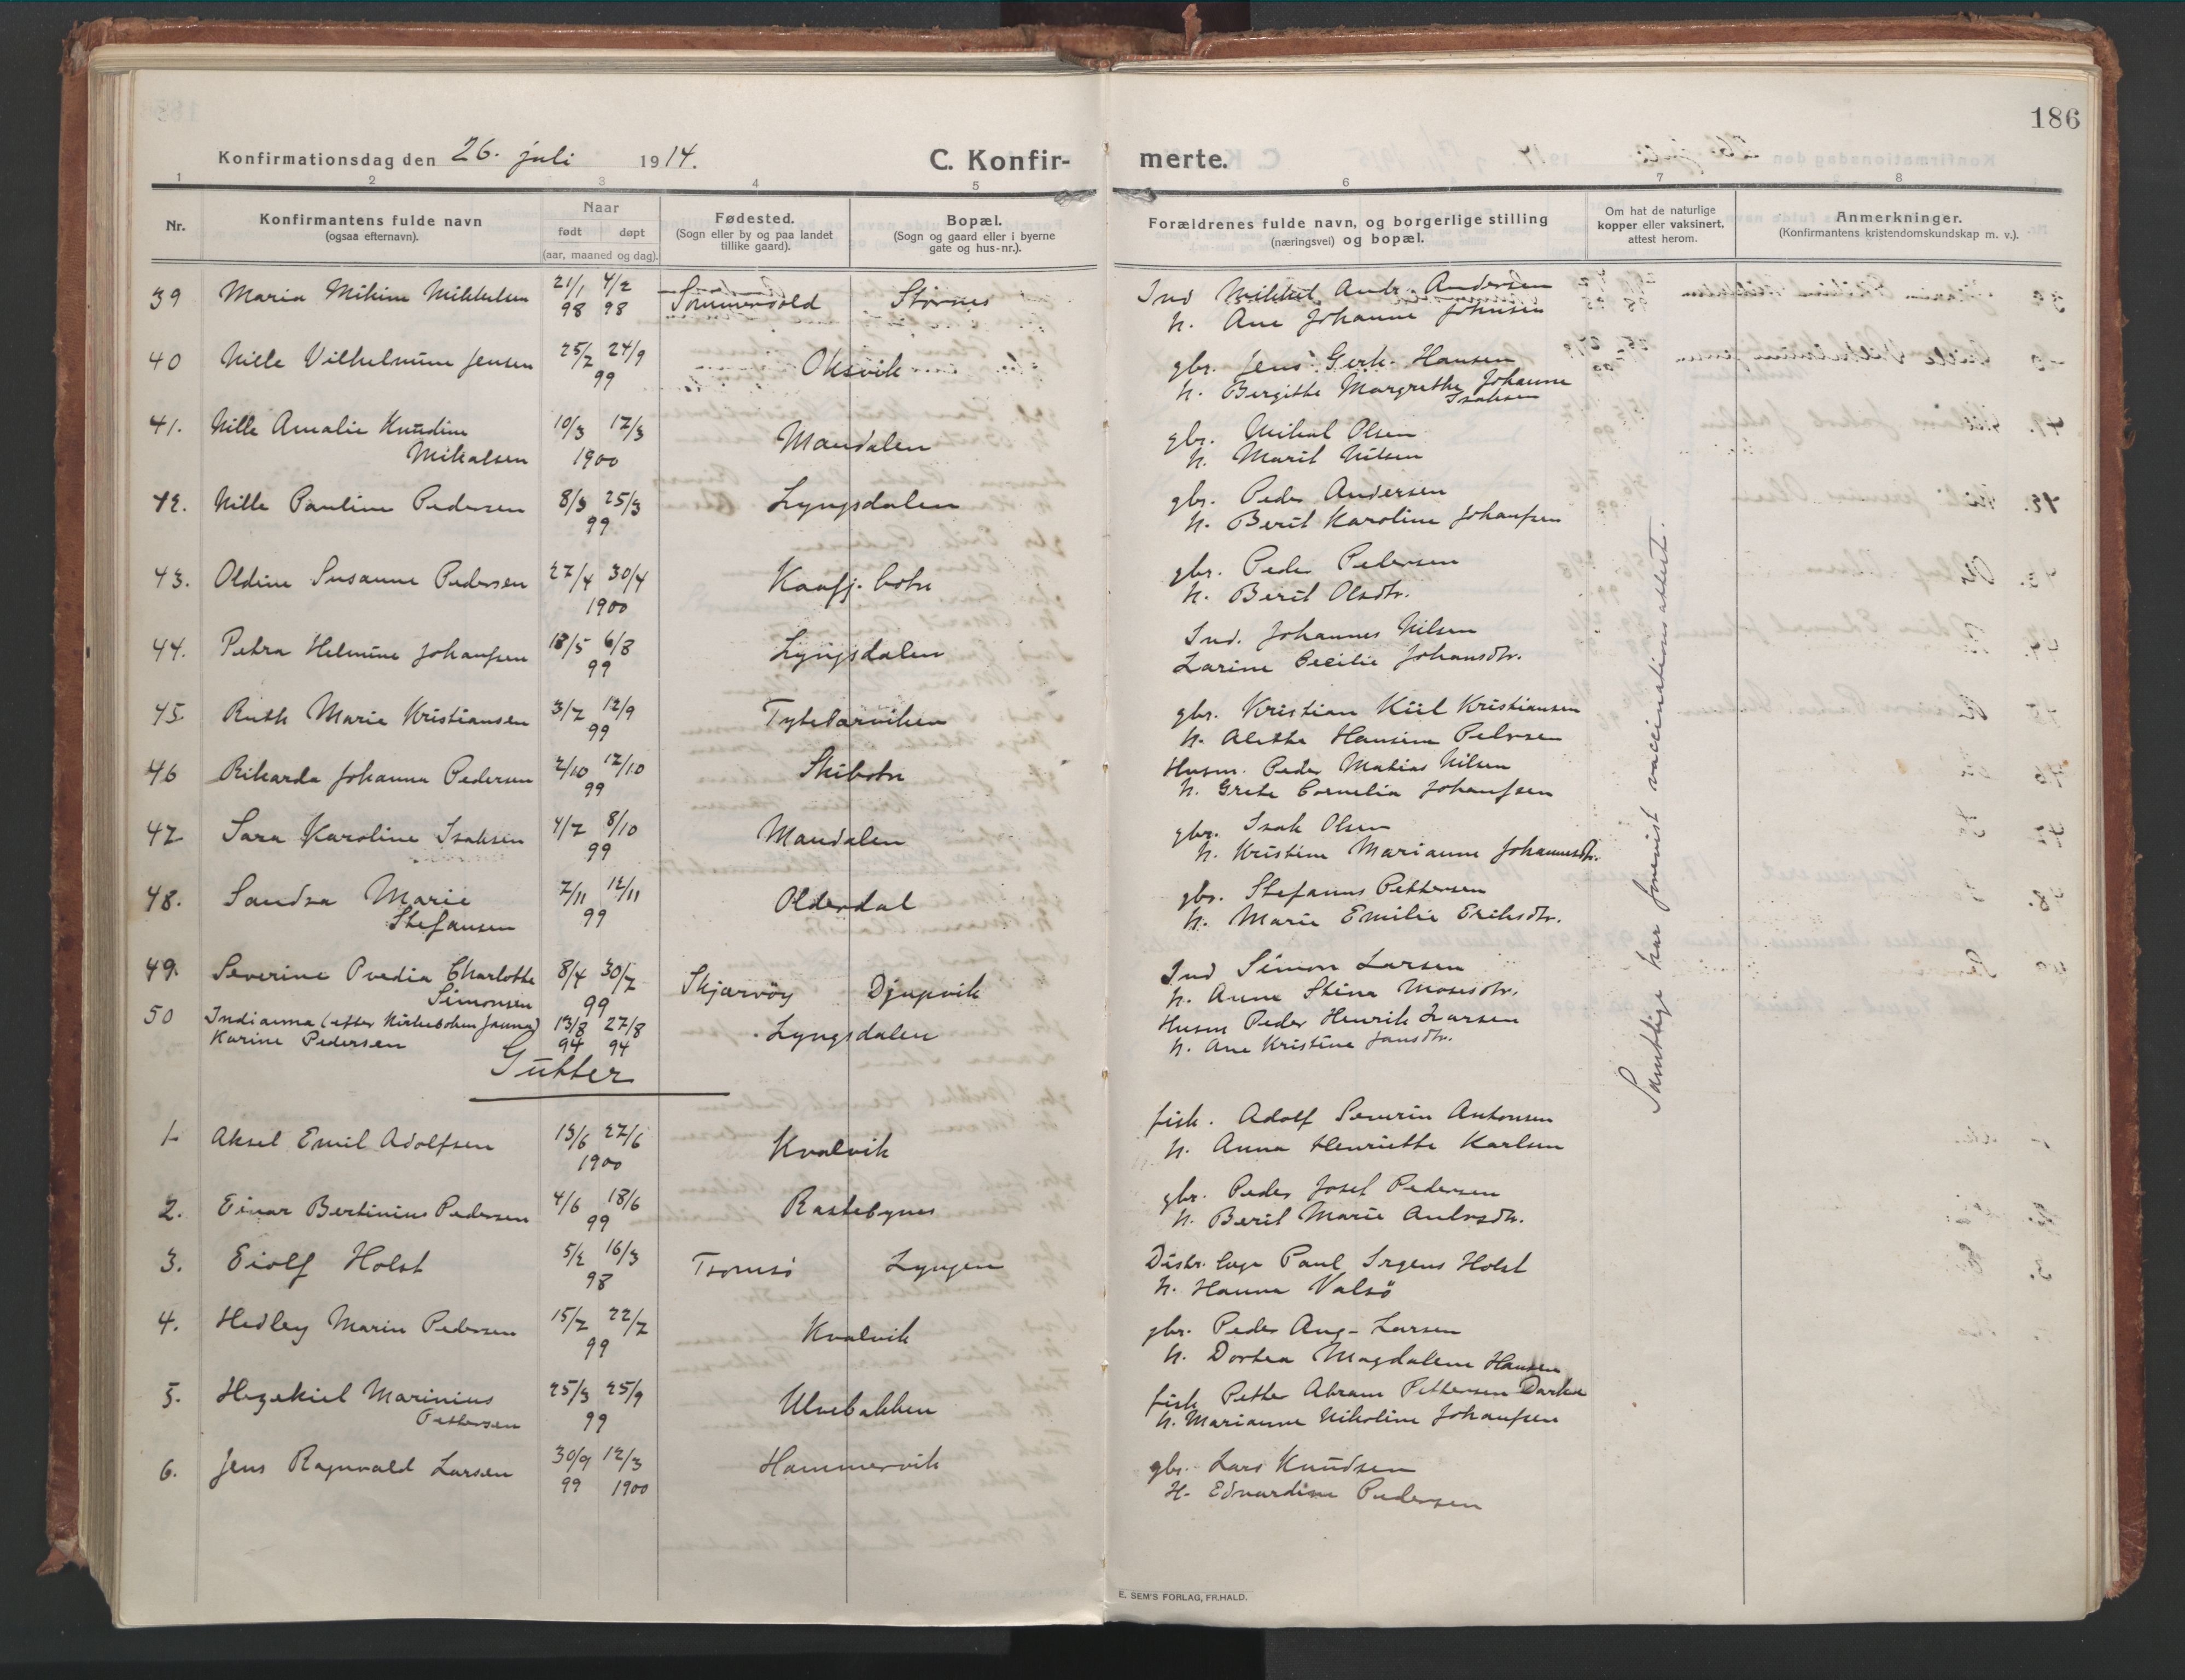 186
Konfirmationsdag den 26. juli 1914.
C. Konfir-
merte.
1 2 3 4 5 6 7 8
Nr.
Konfirmantens fulde navn
(ogsaa efternavn).
Naar
født døpt
(aar, maaned og dag).
Fødested.
(Sogn eller by og paa landet
tillike gaard).
Bopæl.
(Sogn og gaard eller i byerne
gate og hus-nr.).
Forældrenes fulde navn, og borgerlige stilling
(næringsvei) og bopæl.
Om hat de naturlige
kopper eller vaksinert,
attest herom.
Anmerkninger.
(Konfirmantens kristendomskundskap m. v.).
39 Maria Mikine Mikkelsen 21/1 4/2 Sommersæld Stornes Ind Mikkel Andr. Andersen
98 98 h. Ane Johanne Johnsen
40 Nille Vilhelmine Jensen 25/7 24/9 Oksvik gbr. Jens Gerh. Hansen
99 h. Bergithe Margrethe Johanne
Isaksen
41. Nille Amalie Knudine 10/3 17/3 Mandalen gbr. Mikal Olsen
Mikalsen 1900 h. Marit Nilsen
42. Nille Pauline Pedersen 8/3 25/3 Lyngsdalen gbr. Peder Andersen
99 h. Berit Karoline Johansen
43. Oldine Susanne Pedersen 27/4 30/4 Kaafj. botn gbr. Peder Pedersen
1900 h. Berit Olsdtr.
44. Petra Helmine Johansen 18/5 6/8 Lyngsdalen Ind. Johannes Nilsen
99 Larine Cecilie Johansdtr.
45. Ruth Marie Kristiansen 3/7 12/9 Tytebærviken gbr. Kristian Kiil Kristiansen
99 h. Alethe Hansine Pedersen
46 Rikarda Johanna Pedersen 2/10 12/10 Skibotn Husm. Peder Mathias Nilsen
99 h. Grete Cornelia Johansen
47 Sara Karoline Isaksen 4/7 8/10 Mandalen gbr. Isak Olsen
99 h. Kristine Marianne Johannesdtr.
48. Sandra Marie 7/11 12/11 Olderdal gbr. Stefanus Pettersen
Stefansen 99 h. Marie Emilie Eriksdtr.
49. Severine Ovedia Charlotte 8/4 30/7 Skjærvöy Djupvik Ind Simon Larsen
Simonsen 99 h. Anne Stina Mosesdtr.
50 Indianna (efter Kirkeboken Janna) 13/8 27/8 Lyngsdalen Husm Peder Henrik Larsen
Karine Pedersen 94 94 h. Ane Kristine Jansdtr.
Gutter
1. Aksel Emil Adolfsen 13/6 27/6 Kvalvik fisk. Adolf Severin Antonsen
1900 h. Anna Henriette Karlsen
2. Einar Bertinius Pedersen 4/6 18/6 Rastebynes gbr. Peder Josef Pedersen
99 h. Berit Marie Andersdtr.
3. Eiolf Holst 5/2 16/3 Tromsö Lyngen Distr. læge Paul Irgens Holst
98 h. Hanna Valsö
4. Hedley Marin Pedersen 15/7 22/7 Kvalvik gbr. Peder Aug. Larsen
99 h. Dortea Magdalene Hansen
5. Hezekiel Marinius 25/3 25/9 Ulvebakken fisk Petter Abram Pettersen
Pettersen 99 h. Marianne Nikoline Johansen
6. Jens Ragnvald Larsen 30/9 12/3 Hammervik gbr. Lars Knudsen
99 1900 H. Edvardine Pedersen
Samtlige har forevist vaccinationsattest.
E. SEM'S FORLAG, FR.HALD.